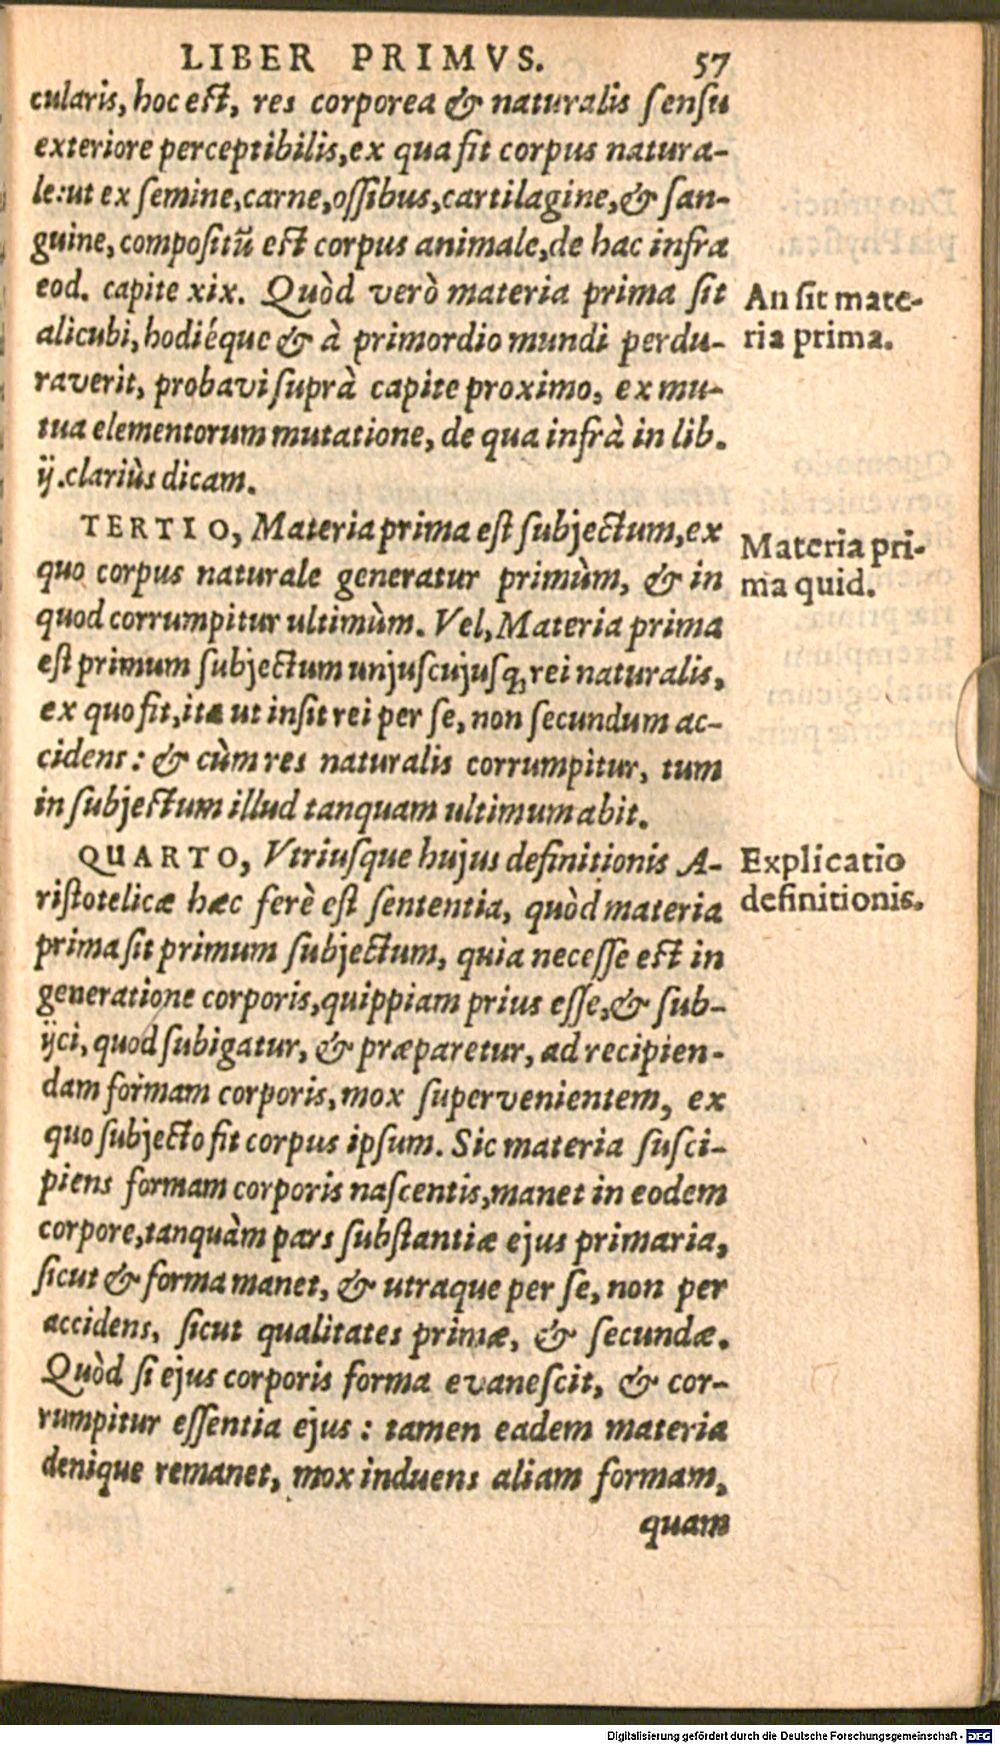 LIBER PRIMVS. 57
cularis, hoc est, res corporea & naturalis sensu
exteriore perceptibilis, ex qua fit corpus natura-
le: ut ex semine, carne, ossibus, cartilagine, & san-
guine, compositũ est corpus animale, de hac infra
eod. capite xix. Quòd verò materia prima sit
alicubi, hodiéque & à primordio mundi perdu-
raverit, probavi suprà capite proximo, ex mu-
tua elementorum mutatione, de qua infrà in lib.
ij. clariùs dicam.
An sit mate-
ria prima.
TERTIO, Materia prima est subjectum, ex
quo corpus naturale generatur primùm, & in
quod corrumpitur ultimùm. Vel, Materia prima
est primum subjectum unjuscujusq; rei naturalis,
ex quo fit, ita ut insit rei per se, non secundum ac-
cidens: & cùm res naturalis corrumpitur, tum
in subjectum illud tanquam ultimum abit.
Materia pri-
ma quid.
QUARTO, Vtriusque hujus definitionis A-
ristotelicæ hæc ferè est sententia, quòd materia
prima sit primum subjectum, quia necesse est in
generatione corporis, quippiam prius esse, & sub-
ijci, quod subigatur, & præparetur, ad recipien-
dam formam corporis, mox supervenientem, ex
quo subjecto fit corpus ipsum. Sic materia susci-
piens formam corporis nascentis, manet in eodem
corpore, tanquàm pars substantiæ ejus primaria,
sicut & forma manet, & utraque per se, non per
accidens, sicut qualitates primæ, & secundæ.
Quòd si ejus corporis forma evanescit, & cor-
rumpitur essentia ejus: tamen eadem materia
denique remanet, mox induens aliam formam,
quam
Explicatio
definitionis.
Digitalisierung gefördert durch die Deutsche Forschungsgemeinschaft - DFG